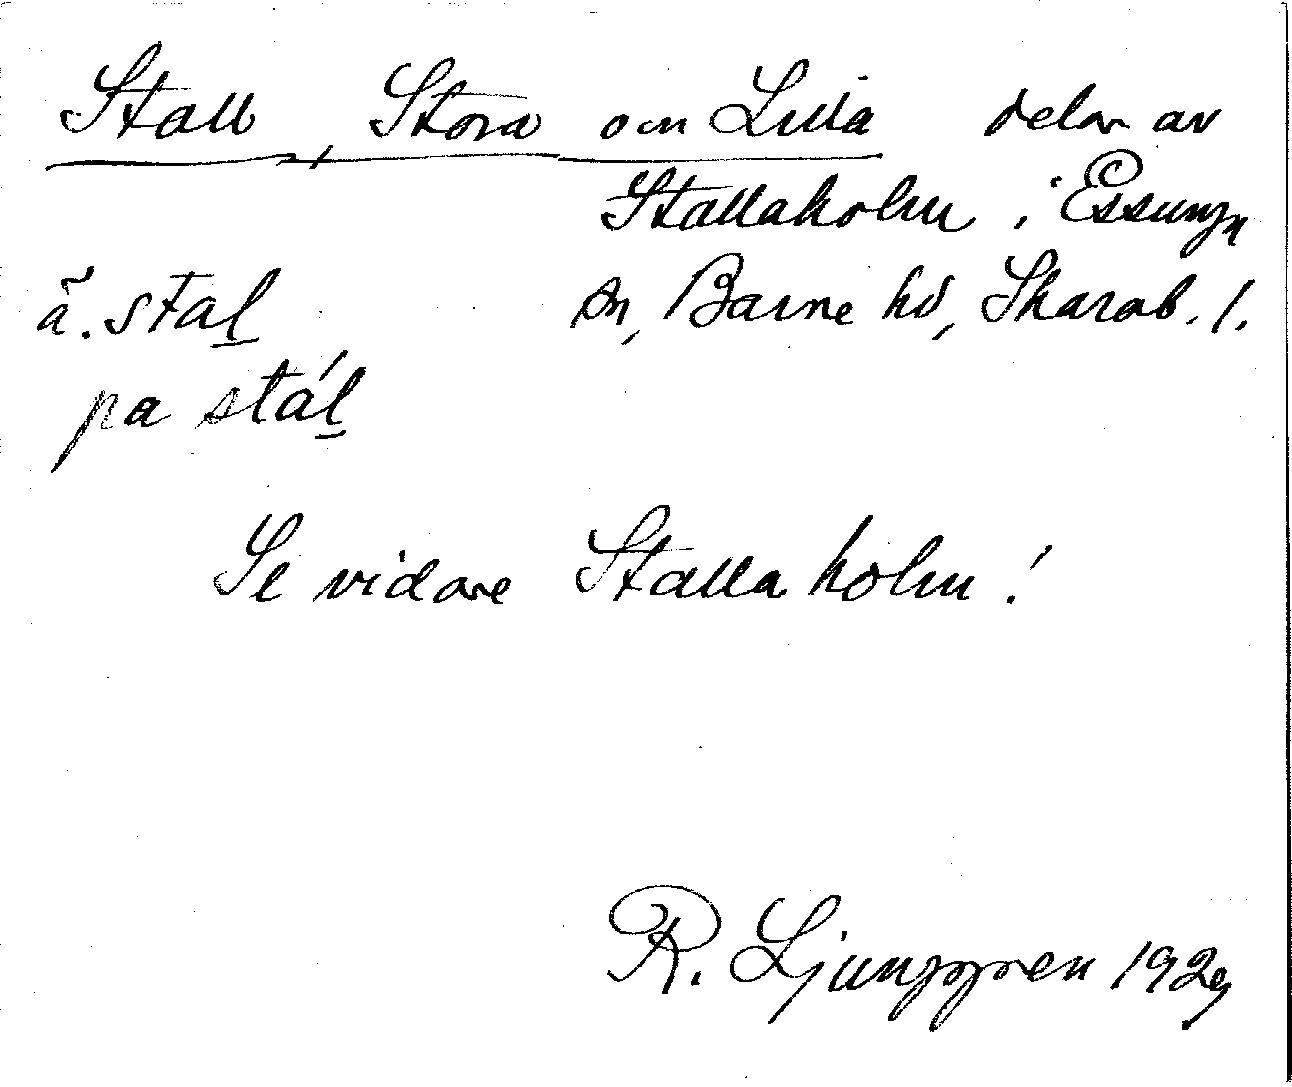 Stall, Stora och Lilla delar av
Stallaholm i Essunga
sn, Barne hd, Skarab. l.
ã. stal̲
pa stál̲
Se vidare Stallaholm!
R. Ljunggren 1929